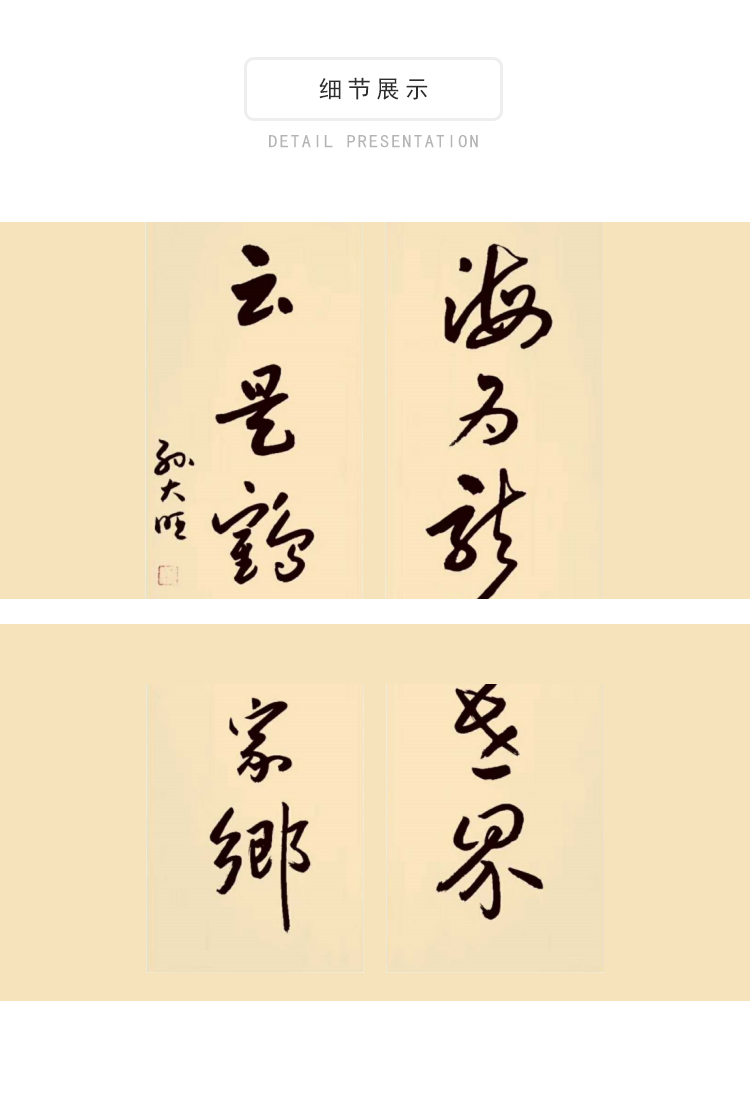 细节展示
DETAIL PRESENTATION
海为龙
云是鹤
孙大旺
世界
家乡